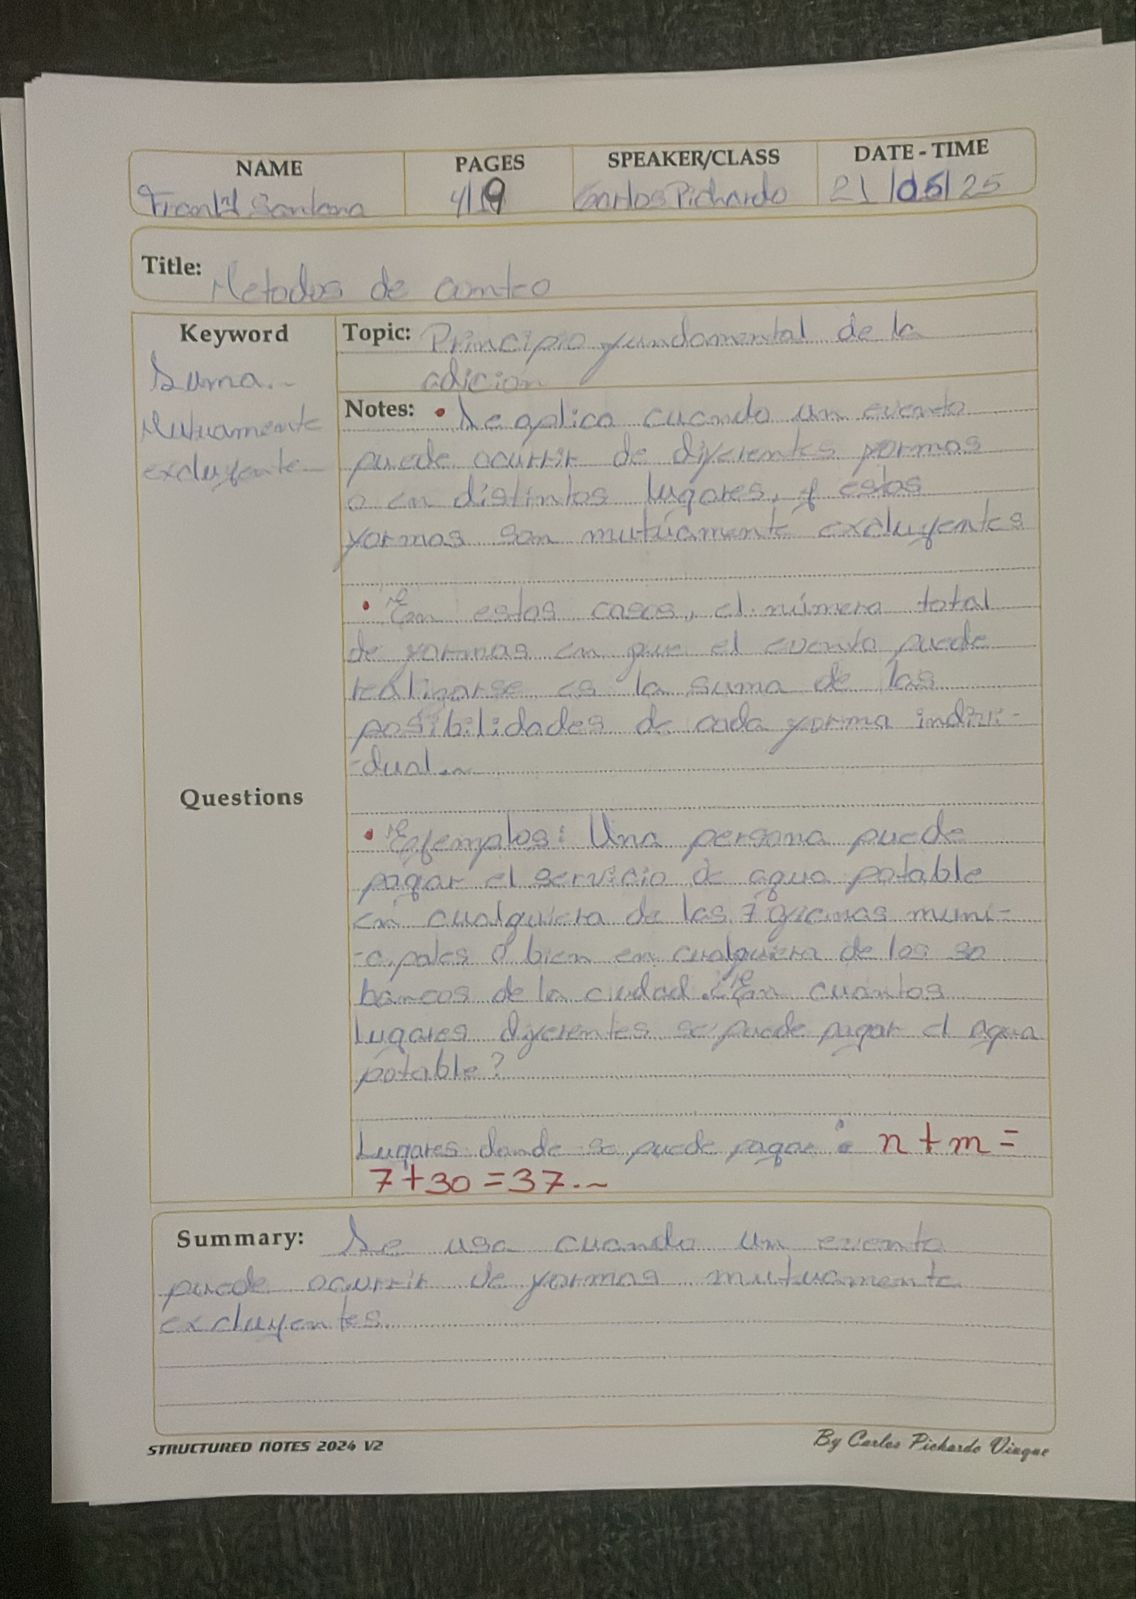 NAME PAGES SPEAKER/CLASS DATE - TIME
Santana 4/19 Carlos Pichardo 21/05/25
Title: Metodos de conteo
Keyword
Suma.
Mutuamente
excluyente
Topic: Principio fundamental de la
adicion
Notes: • Se aplica cuando un evento
puede ocurrir de diferentes formas
o en distintos lugares, y estas
formas son mutuamente excluyentes
• En estos casos, el número total
de formas en que el evento puede
realizarse es la suma de las
posibilidades de cada forma indivi-
-dual.
Questions
• Ejemplos: Una persona puede
pagar el servicio de agua potable
en cualquiera de las 7 oficinas muni-
-cipales o bien en cualquiera de los 30
bancos de la ciudad. ¿En cuantos
lugares diferentes se puede pagar el agua
potable?
Lugares donde se puede pagar: n + m =
7+30=37.~
Summary: Se usa cuando un evento
puede ocurrir de formas mutuamente
excluyentes.
STRUCTURED NOTES 2024 V2 By Carlos Pichardo Viuque